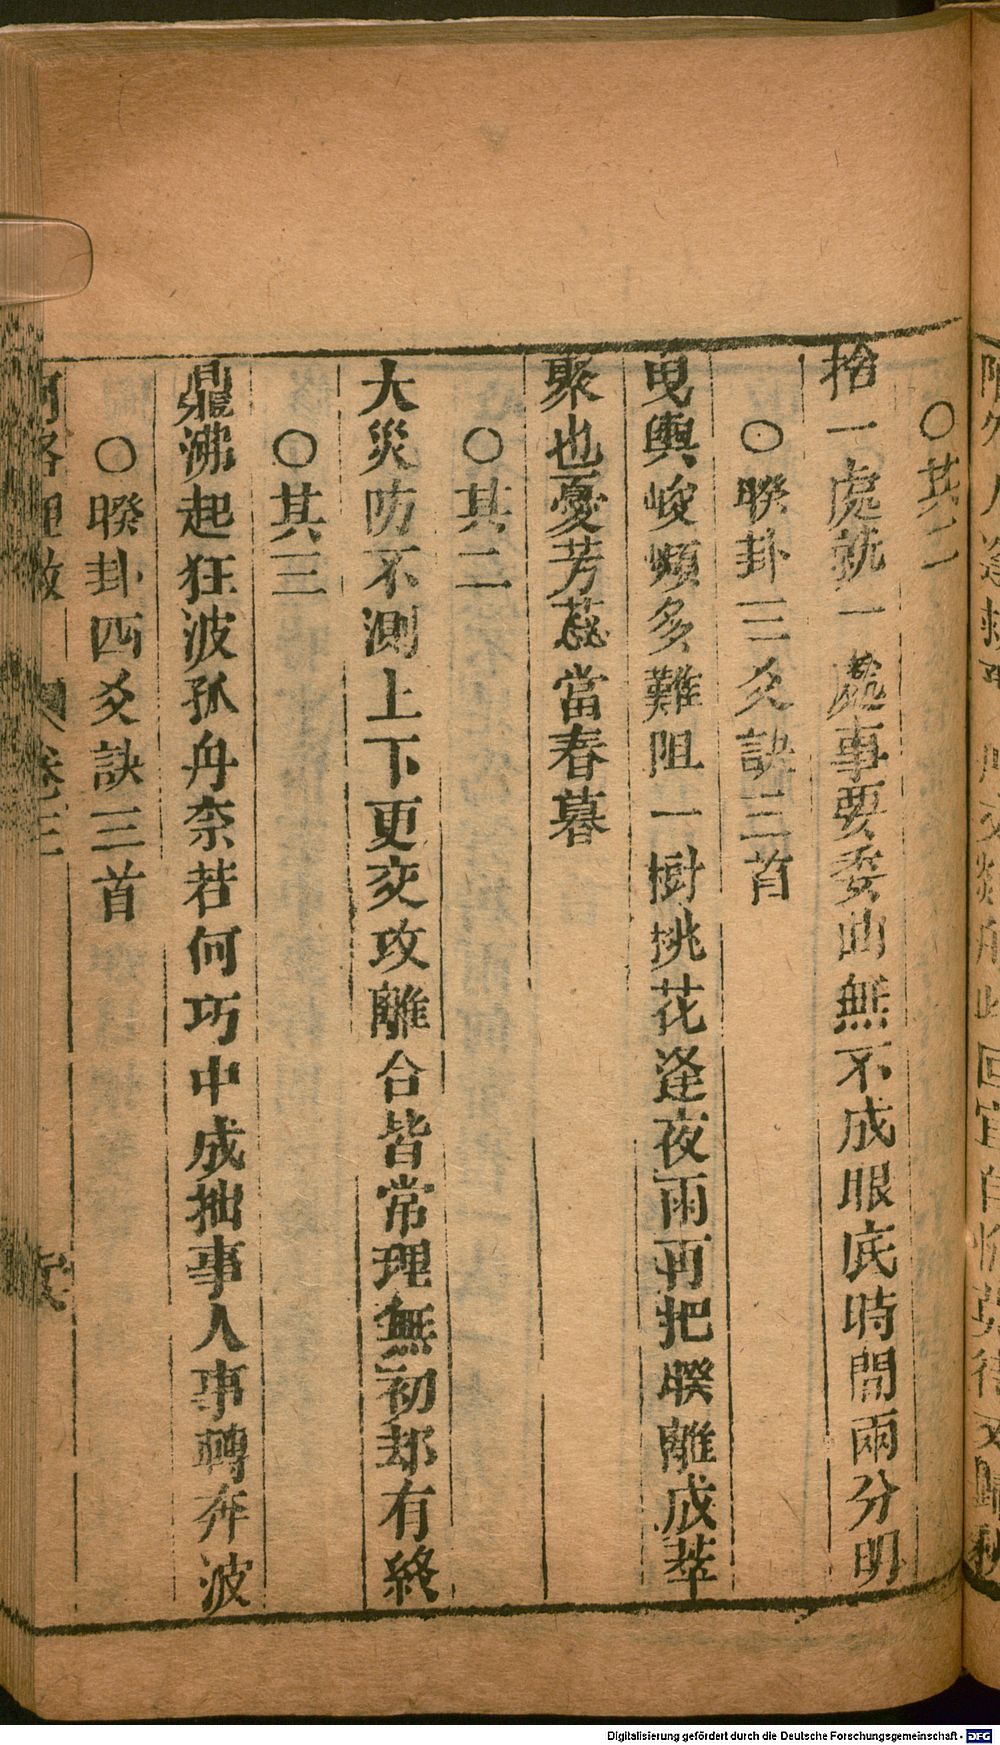 ○其二
捨一處就一處事要委曲無不成眼底時間兩分明
○睽卦三爻訣三首
曳輿峻嶺多難阻一樹桃花逢夜雨再把睽離成萃
聚也憂芳蕊當春暮
○其二
大災防不測上下更交攻離合皆常理無初却有終
○其三
鼎沸起狂波孤舟奈若何巧中成拙事人事轉奔波
○睽卦四爻訣三首
河洛理數 卷三
Digitalisierung gefördert durch die Deutsche Forschungsgemeinschaft - DFG